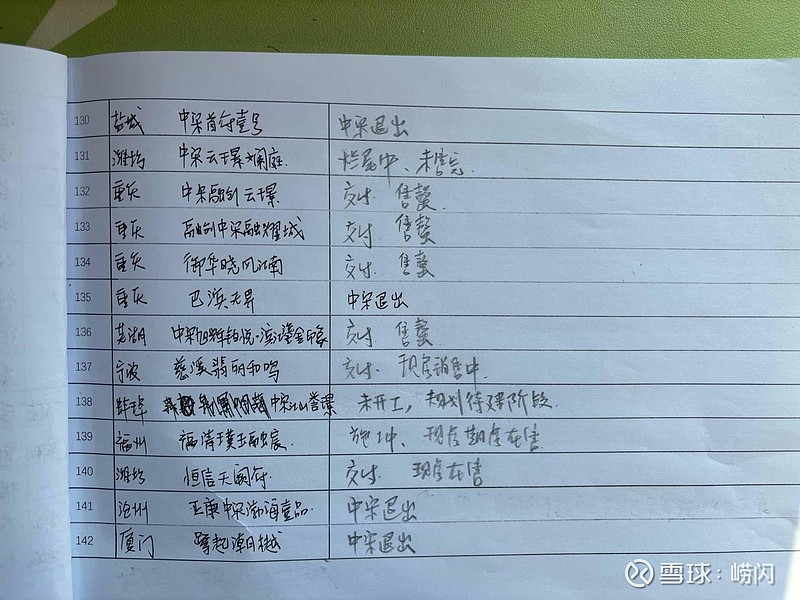 130 盐城 中梁首府壹号 中梁退出
131 潍坊 中梁云璟斓庭. 烂尾中、未售完
132 重庆 中梁融创云璟 交付. 售罄
133 重庆 融创中梁融耀城 交付. 售罄
134 重庆 御华晓风江南 交付. 售罄
135 重庆 巴滨天昇 中梁退出
136 芜湖 中梁旭辉铂悦·滨江金印象 交付. 售罄
137 宁波 慈溪翡丽和鸣 交付. 现房销售中
138 蚌埠 中梁江山誉景 未开工,规划待建阶段.
139 福州 福清璞玉融宸. 施工中、现房期房在售
140 潍坊 恒信天阙府. 交付. 现房在售
141 沧州 正康中梁渤海壹品. 中梁退出
142 厦门 鹭起潮樾 中梁退出
雪球:崂闪